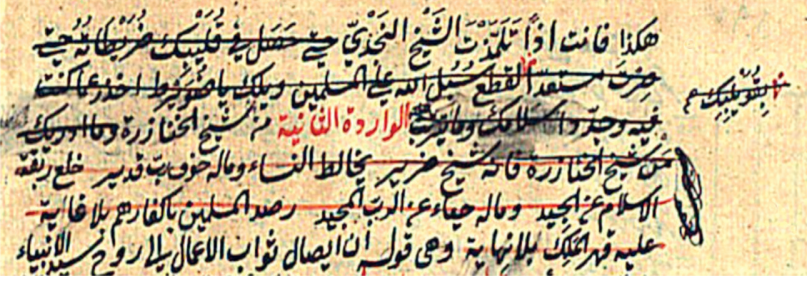 هكذا فانت اذًا تلمّذت الشيخ النجديّ حتى حصل في قُلَيبك ضُريطانه حتى
صرت مستعدّا لقطع سُبُل الله على المسلمين ويلك يا ضُويرط احذر عما كنت
فيه وجدّد اسلامك وما تركب الواردة الثانية من الشيخ الخنازرة وما ادريك
من شيخ الخنازرة فانه شيخ ضرير يخالط النساء وماله خوف ربّ قدير خلع ربقة
الاسلام عن الجيد وماله حياء عن الربّ المجيد رصد المسلمين باكفارهم بلا غاية
عليه قهر الملك بلا نهاية وهى قوله ان ايصال ثواب الاعمال الى روح سيد الانبياء